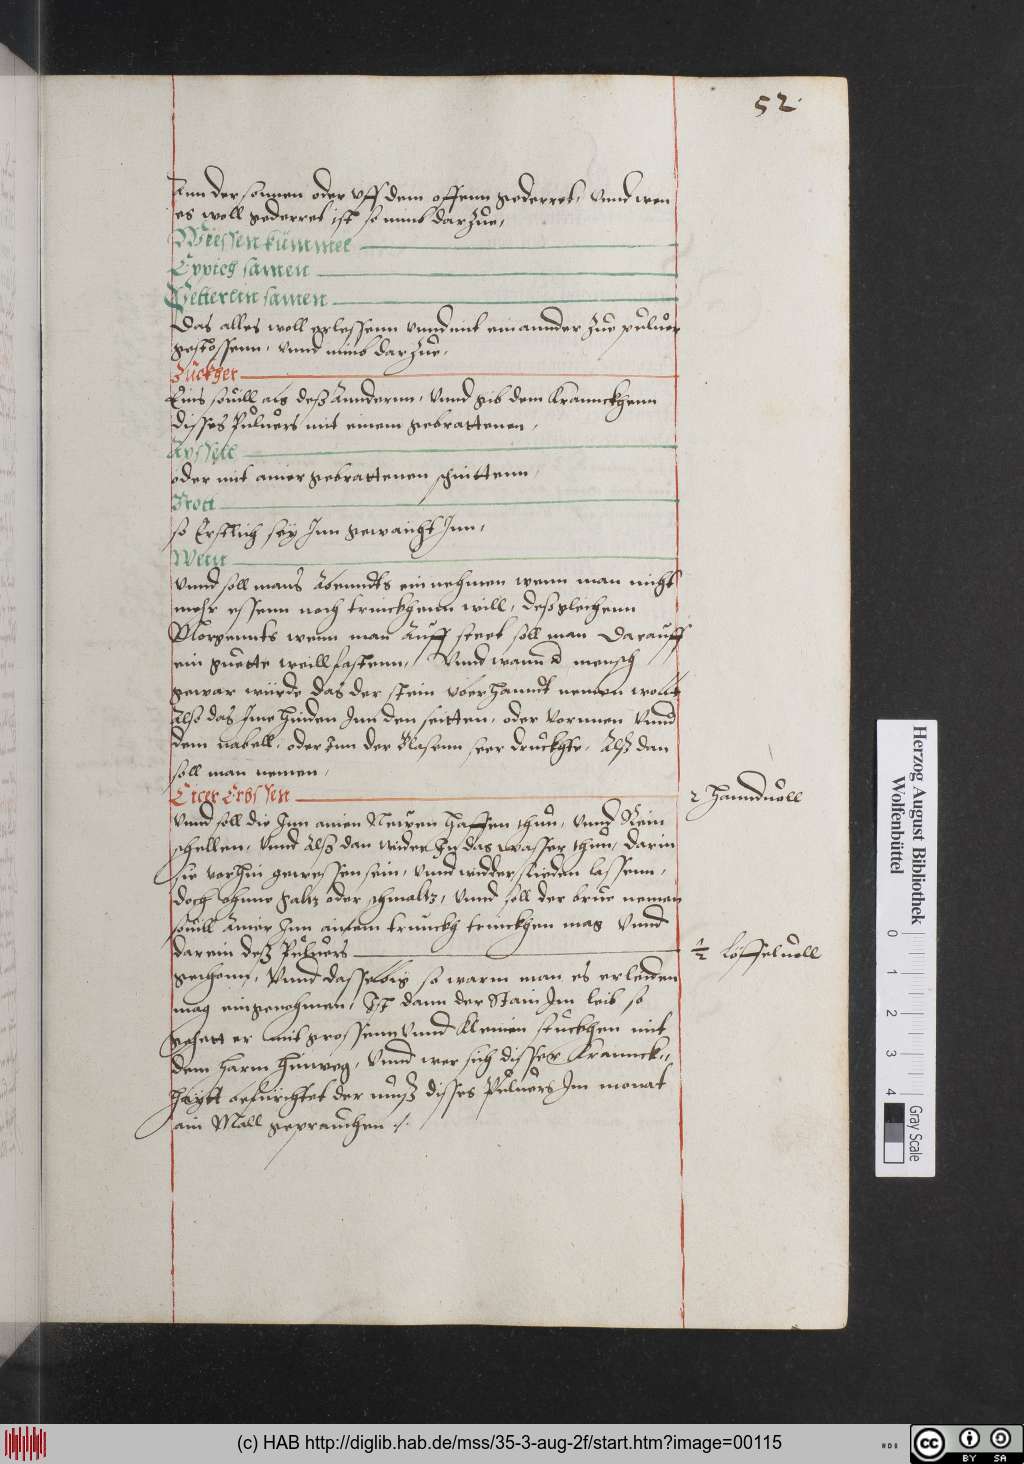 52.
Ann der sonnen oder vff dem offenn gederret, Vnnd wen
es woll gederret ist so nimb darzue,
Wiessen kümmel
Eppich samen
Petterlin samen
Das alles woll erlessenn vnnd mit einannder zue puluer
gestossenn, vnnd nimb darzue,
Zuckher
Eins souill als deß Anndernn, Vnnd gib dem Kranckhenn
disses Puluers mit einem gebrattenen,
Apffell
oder mit ainer gebrattenen schnittenn,
Brott
so Erstlich sey Inn gewaicht Inn,
Wein
Vnnd soll mans Abenndts einnehmen wenn man nicht
mehr essenn noch trinckhenn will, desgleichenn
Morgennts wenn man Auff steet soll man Darauff
ein guette weill fastenn, Vnnd wann d mensch
gewar würde das der stein vberhanndt nemen wolt
Also das Ime hinden Inn den seitten, oder vornnen vnnd
dem nabell, oder Inn der Blasenn seer druckhte, Alß dan
soll man nemen,
Cicer Erbssen
2 Hanndvoll
Vnnd soll die Inn ainen Neuen haffen thun, vnnd Rein
schellen, Vnnd Alß dan wider In das wasser thun, darin
sie vorhin gewessen sein, Vnnd widder sieden lassenn,
doch ohnne saltz oder schmaltz, Vnnd soll der brue nemen
souill Ainer Inn ainem trunckh trinckhen mag Vnnd
darein deß Puluers
½ Löffelvoll
gethonn, Vnnd dasselbig so warm man es erleiden
mag eingenohmen, Ist dann der Stain Im leib so
gehett er mit grossenn vnnd kleinen stuckhen mit
dem harm hinweg, Vnnd wer sich disser Kranck„
haytt befürchtet der muß disses Puluers Im monat
ain Mall geprauchen ./.
Herzog August Bibliothek
Wolfenbüttel
0 1 2 3 4
Gray Scale
(c) HAB http://diglib.hab.de/mss/35-3-aug-2f/start.htm?image=00115
cc BY SA